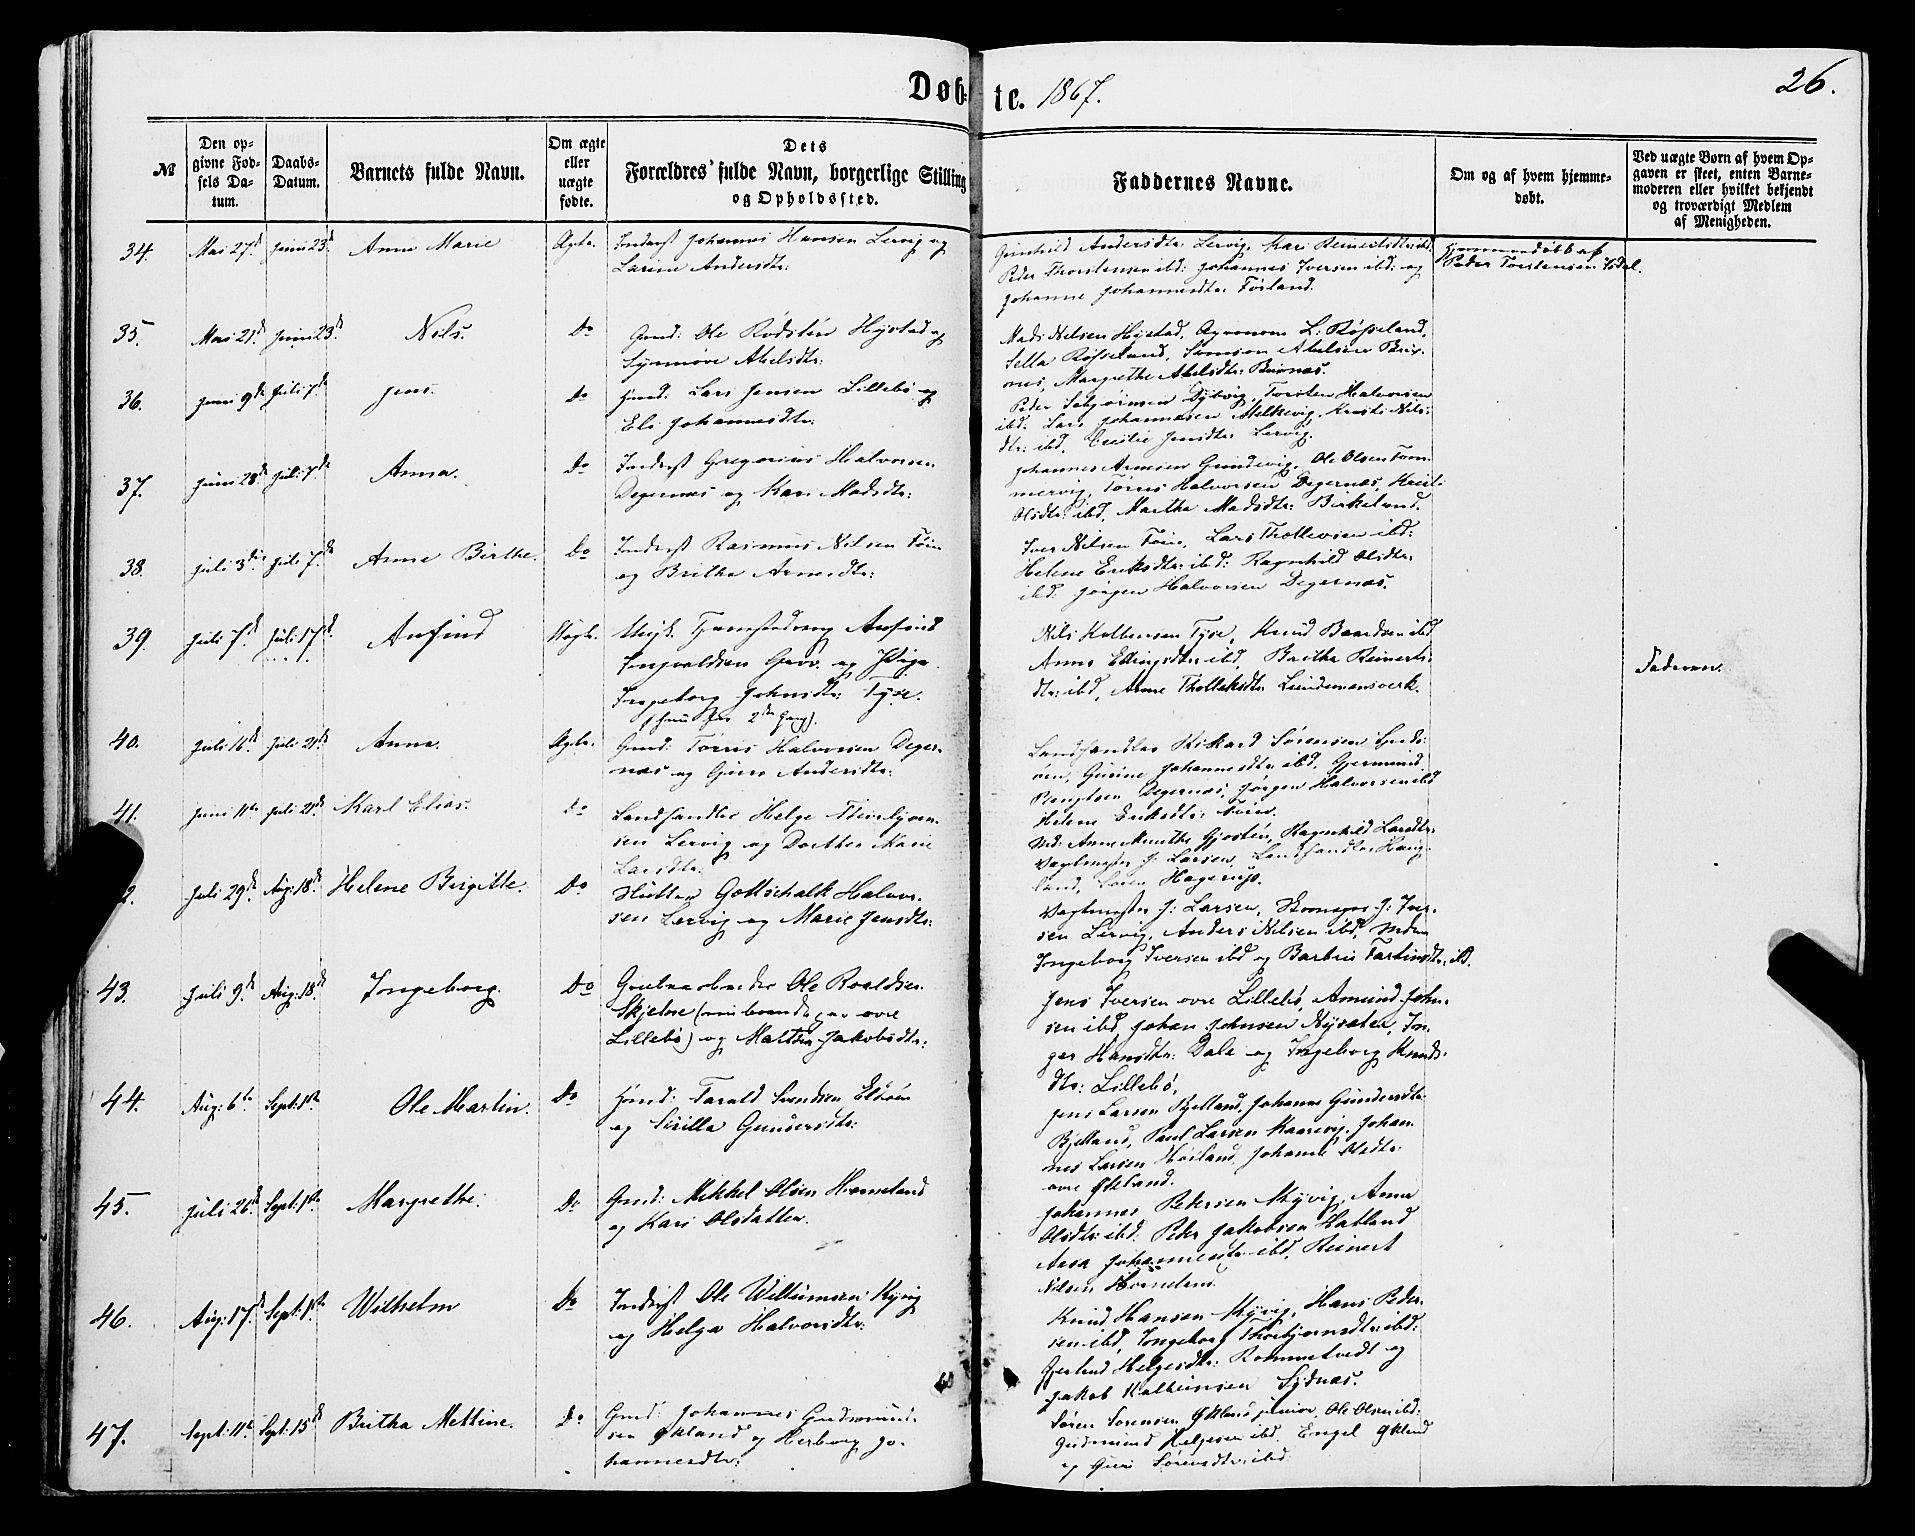 Døbte. 1867.
26.
№
Den opgivne Fødsels Datum.
Daabs-Datum.
Barnets fulde Navn.
Om ægte eller uægte fødte.
Dets Forældres' fulde Navn, borgerlige Stilling og Opholdssted.
Faddernes Navne.
Om og af hvem hjemmedøbt.
Ved uægte Børn af hvem Opgaven er skeet, enten Barnemoderen eller hvilket bekjendt og troværdigt Medlem af Menigheden.
34. Mai 27d Juni 23d Anne Marie Ægte. Inderst Johannes Hansen Lervig og
Larine Andersdtr:
Gunhild Andersdtr: Lervig, Kari Reinertsdtr: ibd.
Peder Thorstensen ibd: Johannes Iversen ibd: og
Johanne Johannesdtr: Førland.
Hjemmedøbt af
Peder Torstensen
35. Mai 21d Juni 23d Nils. Do Gmd: Ole Rødstén Hystad og
Synnøve Abelsdtr:
Mads Nilsen Hystad, Agronom L: Røsseland,
Sella Røsseland, Samson Abelsen
Margrethe Abelsdtr:
36. Juni 9de Juli 7de Jens. Do Gmd. Lars Jensen Lillebø og
Eli Johannesdtr:
Peder Dybvig, Torsten Halvorsen
ibd. Lars Johannesen Melkevig, Kristi Nils-
dtr: ibd, Cecilie Jensdtr: Lervig.
37. Juni 28de Juli 7de Anna. Do Inderst Gregorius Halvorsen
Degernæs og Kari Madsdtr:
Johannes Arnesen Grindevig, Ole Olsen Tom-
mervig, Tørres Halvorsen Degernæs, Kristi
Olsdtr: ibd, Martha Madsdtr: Birkeland.
38. Juli 3die Juli 7de Anne Birthe. Do Inderst Rasmus Nilsen Føien
og Britha Arnesdtr:
Iver Nilsen Føien, Lars Thollevsen ibd:
Helene Eriksdtr: ibd: Ragnhild Olsdtr:
ibd: Jørgen Halvorsen Degernæs.
39. Juli 7de Juli 17de Anfind Uægte. Ungk. Anfind
Ingvaldsen og Pige
Ingeborg Johnsdtr: Tyse.
(hun for 2den Gang).
Nils Kolbensen Tyse, Knud Baardsen ibd
Anna ibd, Britha Reinerts-
dtr: ibd, Anne Thollaksdtr: Lundemansverk.
Faderen.
40. Juli 16de Juli 21de Anna. Ægte. Gmd: Tørres Halvorsen Deger-
næs og Guro Andersdtr:
Landhandler Rikard Sørensen
Gurine Johannesdtr: ibd, Gjermund
Bengtsen Degernæs, Jørgen Halvorsen ibd
Helene Eriksdtr: Føien.
41. Juni 11te Juli 21de Karl Elias. do Landhandler Helge
Lervig og Dorthea Marie
Larsdtr:
Md: Anne Marthe Ragnhild Larsdtr:
Vagtmester J: Larsen, Landhandler Haug-
land, Hagerup.
2. Juli 29de Aug: 18de Helene Birgitte. Do Gottschalk Halvor-
sen Lervig og Marie Jensdtr:
Vagtmester J: Larsen, J: Iver-
sen Lervig, Anders Nilsen ibd, Mdm
Ingeborg Iversen ibd og Barbru ibd.
43. Juli 9de Aug: 18de Ingeborg. Do Grubearbeider Ole Roaldsen
Skjelnæ øvre
Lillebø) og Martha Jakobsdtr:
Jens Iversen øvre Lillebø, Amund John-
sen ibd, Johan Johnsen Nysæter, In-
ger Hansdtr: Dale og Ingeborg Knuds-
dtr: Lillebø.
44. Aug: 6te Sept: 1ste Ole Martin. Do Gmd: Tarald Svendsen Eldøen
og Sirilla Gundersdtr:
Jens Larsen Bjelland, Johanne Gundersdtr:
Bjelland, Paul Larsen Kaarevig, Johan-
nes Larsen Høiland, Johanne Olsdtr:
øvre Økland.
45. Juli 26de Sept: 1ste Margrethe: Do Gmd: Mikkel Olsen Horneland
og Kari Olsdatter.
Johannes Pedersen Kyvig, Anna
Olsdtr: ibd: Peder Jakobsen Hatland
Aasa Johannesdtr: ibd, Reinert
Nilsen Horneland.
46. Aug: 17de Sept: 1ste Wilhelm Do Inderst Ole Willumsen Kyvig
og Helga Halvorsdtr:
Knud Hansen Kyvig, Hans Peder-
sen ibd, Ingeborg Thorbjørnsdtr: ibd:
Gjertrud Helgesdtr: Rommetvedt og
Jakob Kolbensen Sydnæs.
47. Sept: 11te Sept: 15de Britha Mettine. Do Gmd: Johannes Gudmund-
sen Økland og Herborg Jo-
hannesdtr:
Søren Sørensen Økland junior, Ole Olsen ibd:
Gudmund Helgesen ibd. Engel Økland
og Guri Sørensdtr: ibd: